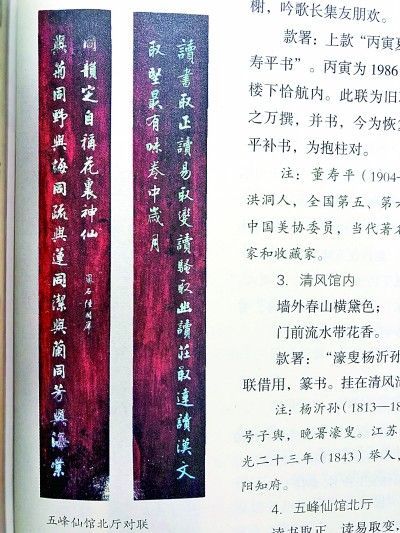 讀書取正讀易取變讀騷取幽讀莊取達讀漢文
取堅最有味卷中歲月
與菊同野與梅同疏與蓮同潔與蘭同芳與海棠
同韻定自稱花裏神仙
鳳石陸潤庠
五峰仙馆北厅对联
榭，吟歌长集友朋欢。
款署：上款“丙寅夏
寿平书”。丙寅为1986
楼下恰航内。此联为旧
之万撰，并书，今为恢
平补书，为抱柱对。
注：董寿平（1904-
洪洞人，全国第五、第六
中国美协委员，当代著名
家和收藏家。
3. 清风馆内
墙外春山横黛色；
门前流水带花香。
款署：“濠叟杨沂孙
联借用，篆书。挂在清风
注：杨沂孙（1813—18
号子舆，晚署濠叟。江苏
光二十三年（1843）举人，
阳知府。
4. 五峰仙馆北厅
读书取正，读易取变，